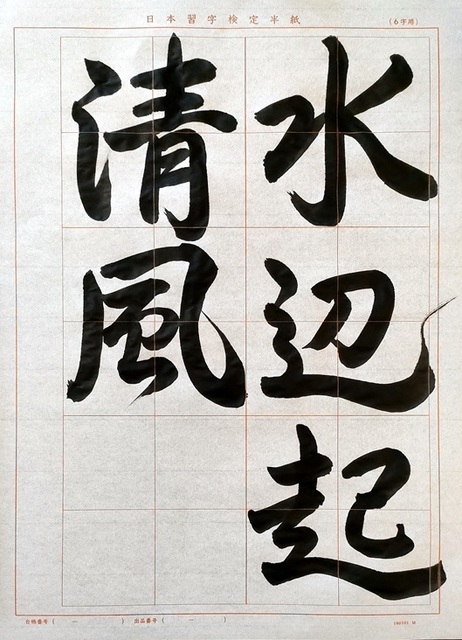 日本習字検定半紙
(6字用)
水辺起
清風
白楊番号 ( ー ) 出品番号 ( ー )